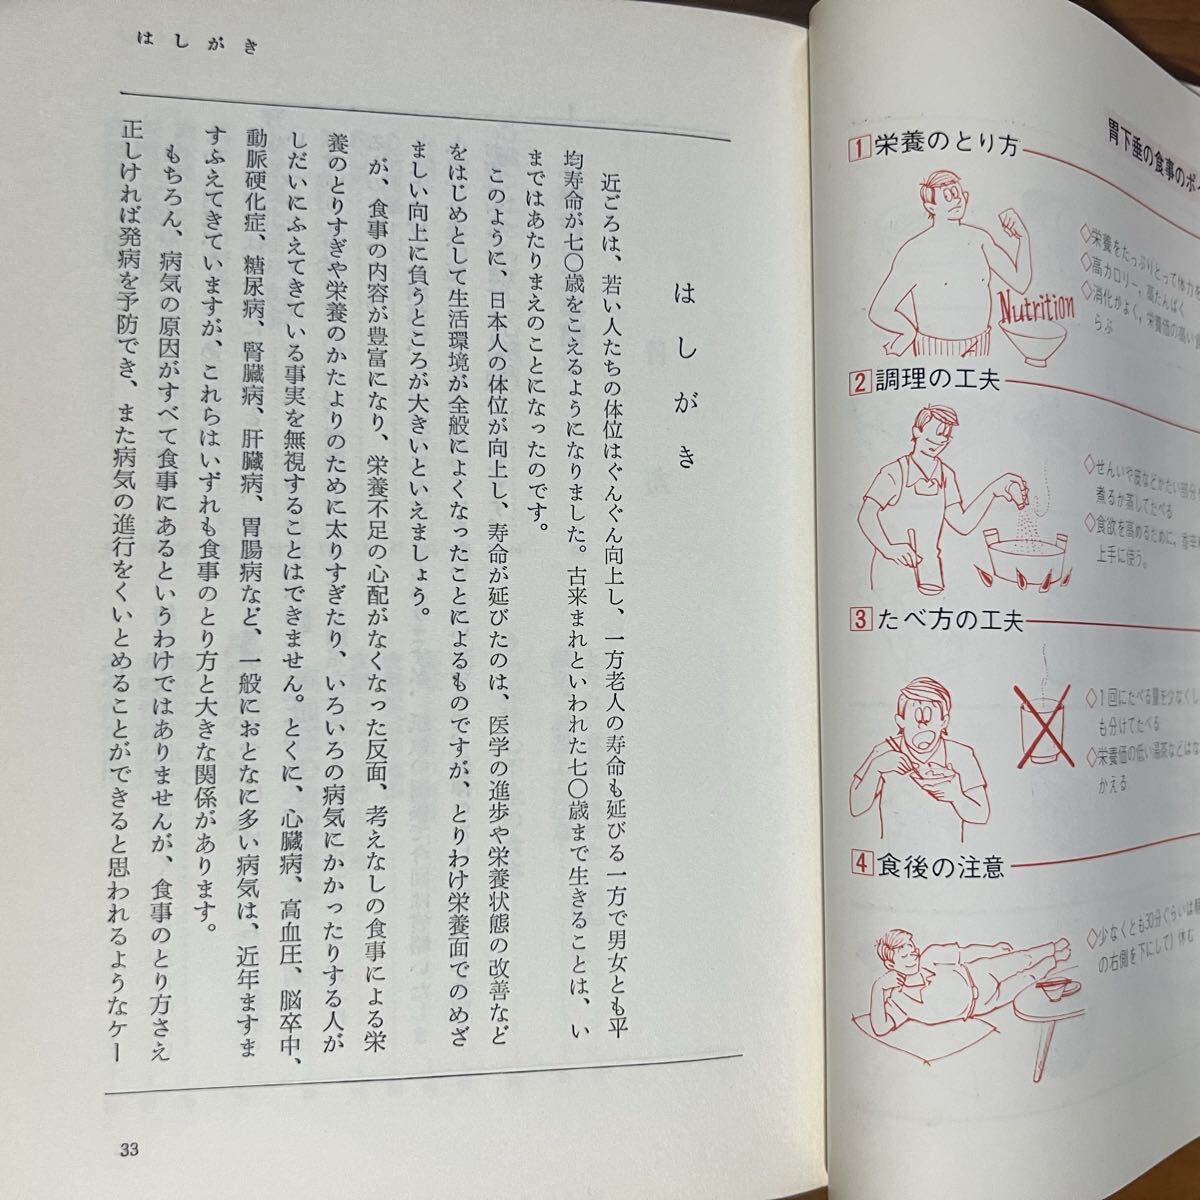 はしがき
はしがき
近ごろは、若い人たちの体位はぐんぐん向上し、一方老人の寿命も延びる一方で男女とも平
均寿命が七〇歳をこえるようになりました。古来まれといわれた七〇歳まで生きることは、い
まではあたりまえのことになったのです。
このように、日本人の体位が向上し、寿命が延びたのは、医学の進歩や栄養状態の改善など
をはじめとして生活環境が全般によくなったことによるものですが、とりわけ栄養面でのめざ
ましい向上に負うところが大きいといえましょう。
が、食事の内容が豊富になり、栄養不足の心配がなくなった反面、考えなしの食事による栄
養のとりすぎや栄養のかたよりのために太りすぎたり、いろいろの病気にかかったりする人が
しだいにふえてきている事実を無視することはできません。とくに、心臓病、高血圧、脳卒中、
動脈硬化症、糖尿病、腎臓病、肝臓病、胃腸病など、一般におとなに多い病気は、近年ますま
すふえてきていますが、これらはいずれも食事のとり方と大きな関係があります。
もちろん、病気の原因がすべて食事にあるというわけではありませんが、食事のとり方さえ
正しければ発病を予防でき、また病気の進行をくいとめることができると思われるようなケー
33
胃下垂の食事のポ
1 栄養のとり方
◇栄養をたっぷりとって体力を
◇高カロリー，高たんぱく
◇消化がよく，栄養価の高い食
らぶ
Nutrition
2 調理の工夫
◇せんいや皮などかたい部分
煮るか蒸してたべる
◇食欲を高めるために，香辛
上手に使う。
3 たべ方の工夫
◇1回にたべる量を少なくし
も分けてたべる
◇栄養価の低い湯茶などはな
かえる
4 食後の注意
◇少なくとも30分ぐらいは
の右側を下にして）休む